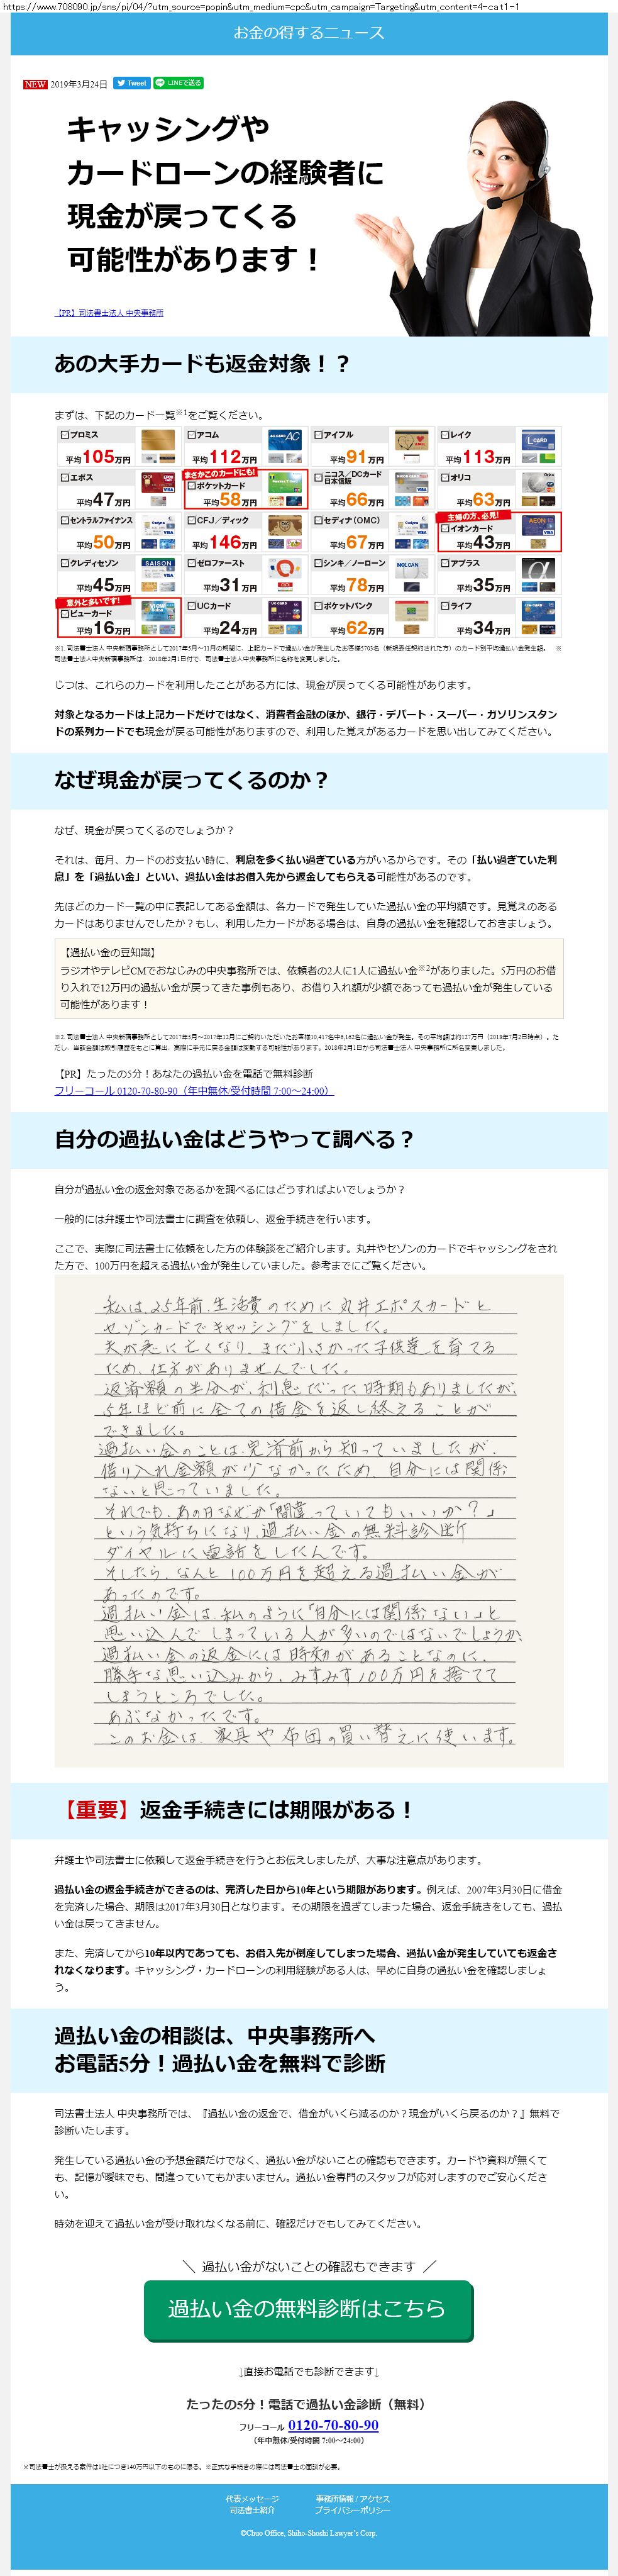 https://www.708090.jp/sns/pi/04/?utm_source=popin&utm_medium=cpc&utm_campaign=Targeting&utm_content=4-cat1-1
お金の得するニュース
NEW 2019年3月24日 Tweet LINEで送る
キャッシングや
カードローンの経験者に
現金が戻ってくる
可能性があります！
【PR】司法書士法人 中央事務所
あの大手カードも返金対象！？
まずは、下記のカード一覧※1をご覧ください。
プロミス 平均105万円
アコム 平均112万円
アイフル 平均91万円
レイク 平均113万円
エポス 平均47万円
まさかこのカードにも!
ポケットカード 平均58万円
ニコス／DCカード 日本信販 平均66万円
オリコ 平均63万円
セントラルファイナンス 平均50万円
CFJ／ディック 平均146万円
セディナ（OMC） 平均67万円
主婦の方、必見！
イオンカード 平均43万円
クレディセゾン 平均45万円
ゼロファースト 平均31万円
シンキ／ノーローン 平均78万円
アプラス 平均35万円
意外と多いです！
ビューカード 平均16万円
UCカード 平均24万円
ポケットバンク 平均62万円
ライフ 平均34万円
※1. 司法■士法人 中央新宿事務所として2017年5月～11月の期間に、上記カードで過払い金が発生したお客様5703名（新規委任契約された方）のカード別平均過払い金発生額。 ※
司法■士法人中央新宿事務所は、2018年2月1日付で、司法■士法人中央事務所に名称を変更しました。
じつは、これらのカードを利用したことがある方には、現金が戻ってくる可能性があります。
対象となるカードは上記カードだけではなく、消費者金融のほか、銀行・デパート・スーパー・ガソリンスタン
ドの系列カードでも現金が戻る可能性がありますので、利用した覚えがあるカードを思い出してみてください。
なぜ現金が戻ってくるのか？
なぜ、現金が戻ってくるのでしょうか？
それは、毎月、カードのお支払い時に、利息を多く払い過ぎている方がいるからです。その「払い過ぎていた利
息」を「過払い金」といい、過払い金はお借入先から返金してもらえる可能性があるのです。
先ほどのカード一覧の中に表記してある金額は、各カードで発生していた過払い金の平均額です。見覚えのある
カードはありませんでしたか？もし、利用したカードがある場合は、自身の過払い金を確認しておきましょう。
【過払い金の豆知識】
ラジオやテレビCMでおなじみの中央事務所では、依頼者の2人に1人に過払い金※2がありました。5万円のお借
り入れで12万円の過払い金が戻ってきた事例もあり、お借り入れ額が少額であっても過払い金が発生している
可能性があります！
※2. 司法■士法人 中央新宿事務所として2017年5月～2017年12月にご契約いただいたお客様10,417名中6,162名に過払い金が発生。その平均額は約127万円（2018年7月2日時点）。た
だし、当該金額は取引履歴をもとに算出、実際に手元に戻る金額は変動する可能性があります。2018年2月1日から司法■士法人 中央事務所に所名変更しました。
【PR】たったの5分！あなたの過払い金を電話で無料診断
フリーコール 0120-70-80-90（年中無休/受付時間 7:00～24:00）
自分の過払い金はどうやって調べる？
自分が過払い金の返金対象であるかを調べるにはどうすればよいでしょうか？
一般的には弁護士や司法書士に調査を依頼し、返金手続きを行います。
ここで、実際に司法書士に依頼をした方の体験談をご紹介します。丸井やセゾンのカードでキャッシングをされ
た方で、100万円を超える過払い金が発生していました。参考までにご覧ください。
私は、25年前、生活費のために丸井エポスカードと
セゾンカードでキャッシングをしました。
夫が急に亡くなり、まだ小さかった子供達を育てる
ため、仕方がありませんでした。
返済額の半分が、利息だった時期もありましたが、
5年ほど前に全ての借金を返し終えることが
できました。
過払い金のことは、完済前から知っていましたが、
借り入れ金額が少なかったため、自分には関係
ないと思っていました。
それでも、あの日なぜか「間違っていてもいいか？」
という気持ちになり、過払い金の無料診断
ダイヤルに電話をしたんです。
そしたら、なんと100万円を超える過払い金が
あったのです。
過払い金は、私のように「自分には関係ない」と
思い込んでしまっている人が多いのではないでしょうか。
過払い金の返金には時効があることなのに、
勝手な思い込みから、みすみす100万円を捨てて
しまうところでした。
あぶなかったです。
このお金は、家具や布団の買い替えに使います。
【重要】返金手続きには期限がある！
弁護士や司法書士に依頼して返金手続きを行うとお伝えしましたが、大事な注意点があります。
過払い金の返金手続きができるのは、完済した日から10年という期限があります。例えば、2007年3月30日に借金
を完済した場合、期限は2017年3月30日となります。その期限を過ぎてしまった場合、返金手続きをしても、過払
い金は戻ってきません。
また、完済してから10年以内であっても、お借入先が倒産してしまった場合、過払い金が発生していても返金さ
れなくなります。キャッシング・カードローンの利用経験がある人は、早めに自身の過払い金を確認しましょ
う。
過払い金の相談は、中央事務所へ
お電話5分！過払い金を無料で診断
司法書士法人 中央事務所では、『過払い金の返金で、借金がいくら減るのか？現金がいくら戻るのか？』無料で
診断いたします。
発生している過払い金の予想金額だけでなく、過払い金がないことの確認もできます。カードや資料が無くて
も、記憶が曖昧でも、間違っていてもかまいません。過払い金専門のスタッフが応対しますのでご安心くださ
い。
時効を迎えて過払い金が受け取れなくなる前に、確認だけでもしてみてください。
＼ 過払い金がないことの確認もできます ／
過払い金の無料診断はこちら
↓直接お電話でも診断できます↓
たったの5分！電話で過払い金診断（無料）
フリーコール 0120-70-80-90
（年中無休/受付時間 7:00～24:00）
※司法■士が扱える案件は1社につき140万円以下のものに限る。※正式な手続きの際には司法■士の面談が必要。
代表メッセージ 事務所情報 / アクセス
司法書士紹介 プライバシーポリシー
©Chuo Office, Shiho-Shoshi Lawyer's Corp.